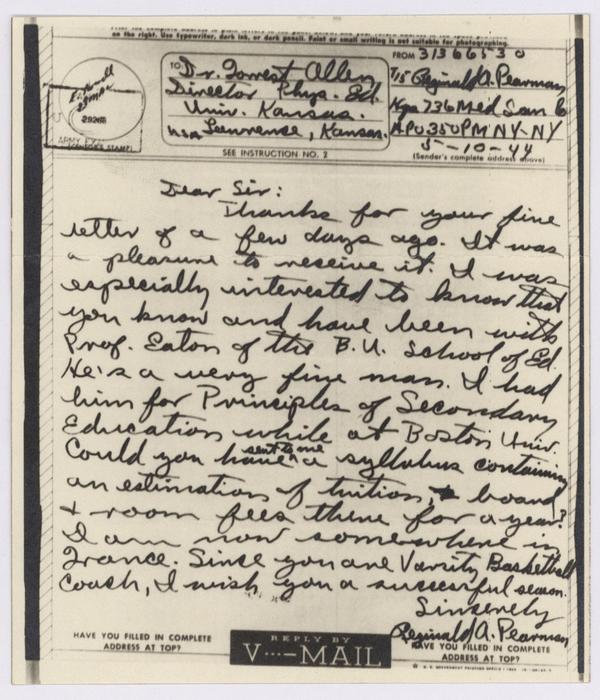 on the right. Use typewriter, dark ink, or dark pencil. Faint or small writing is not suitable for photographing.
TO
Dr. Forrest Allen
Director Phys. Ed.
Univ. Kansas.
USA Lawrence, Kansas.
FROM 31366530
T/5 Reginald A. Pearman
Hqs 726 Med San
APO 350 PM NY-NY
5-10-44
(Sender's complete address above)
SEE INSTRUCTION NO. 2
Dear Sir:
Thanks for your fine
letter of a few days ago. It was
a pleasure to receive it. I was
especially interested to know that
you know and have been with
Prof. Eaton of the B.U. School of Ed.
He's a very fine man. I had
him for Principles of Secondary
Education while at Boston Univ.
Could you have sent to me a syllabus containing
an estimation of tuition, board
+ room fees there for a year?
I am now somewhere in
France. Since you are Varsity Basketball
Coach, I wish you a successful season.
Sincerely
Reginald A. Pearman
HAVE YOU FILLED IN COMPLETE
ADDRESS AT TOP?
REPLY BY
V···—MAIL
HAVE YOU FILLED IN COMPLETE
ADDRESS AT TOP?